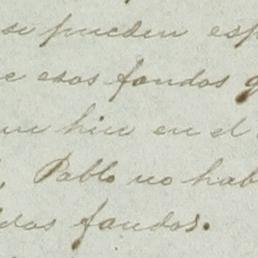 se pueden esp
e esos fondos q
ue hice en el
Pablo no hab
dos fondos.